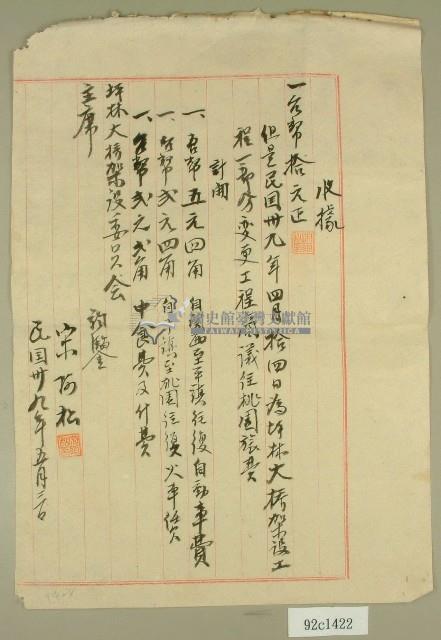 收據
一台幣拾元正
但是民國卅九年四月拾四日為坪林大橋架設工
程一部分變更工程會議往桃園旅費
計開
一、台幣五元四角 自 至平鎮往復自動車費
一、台幣弍元四角 平鎮至桃園往復火車賃
一、台幣弍元弍角 中食費及什費
坪林大橋架設委員会
主席
宋阿松
民国卅九年五月二日
國史館臺灣文獻館
TAIWAN HISTORICA
92c1422